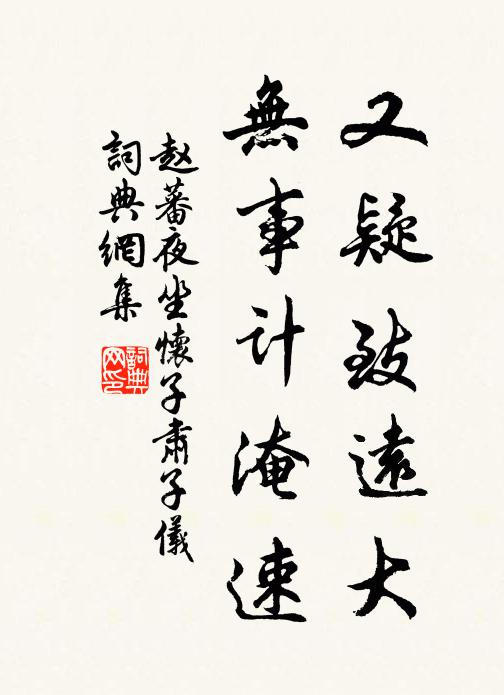 又疑致遠大
無事計淹速
赵蕃夜坐懷子肅子儀
詞典網集
詞典网印